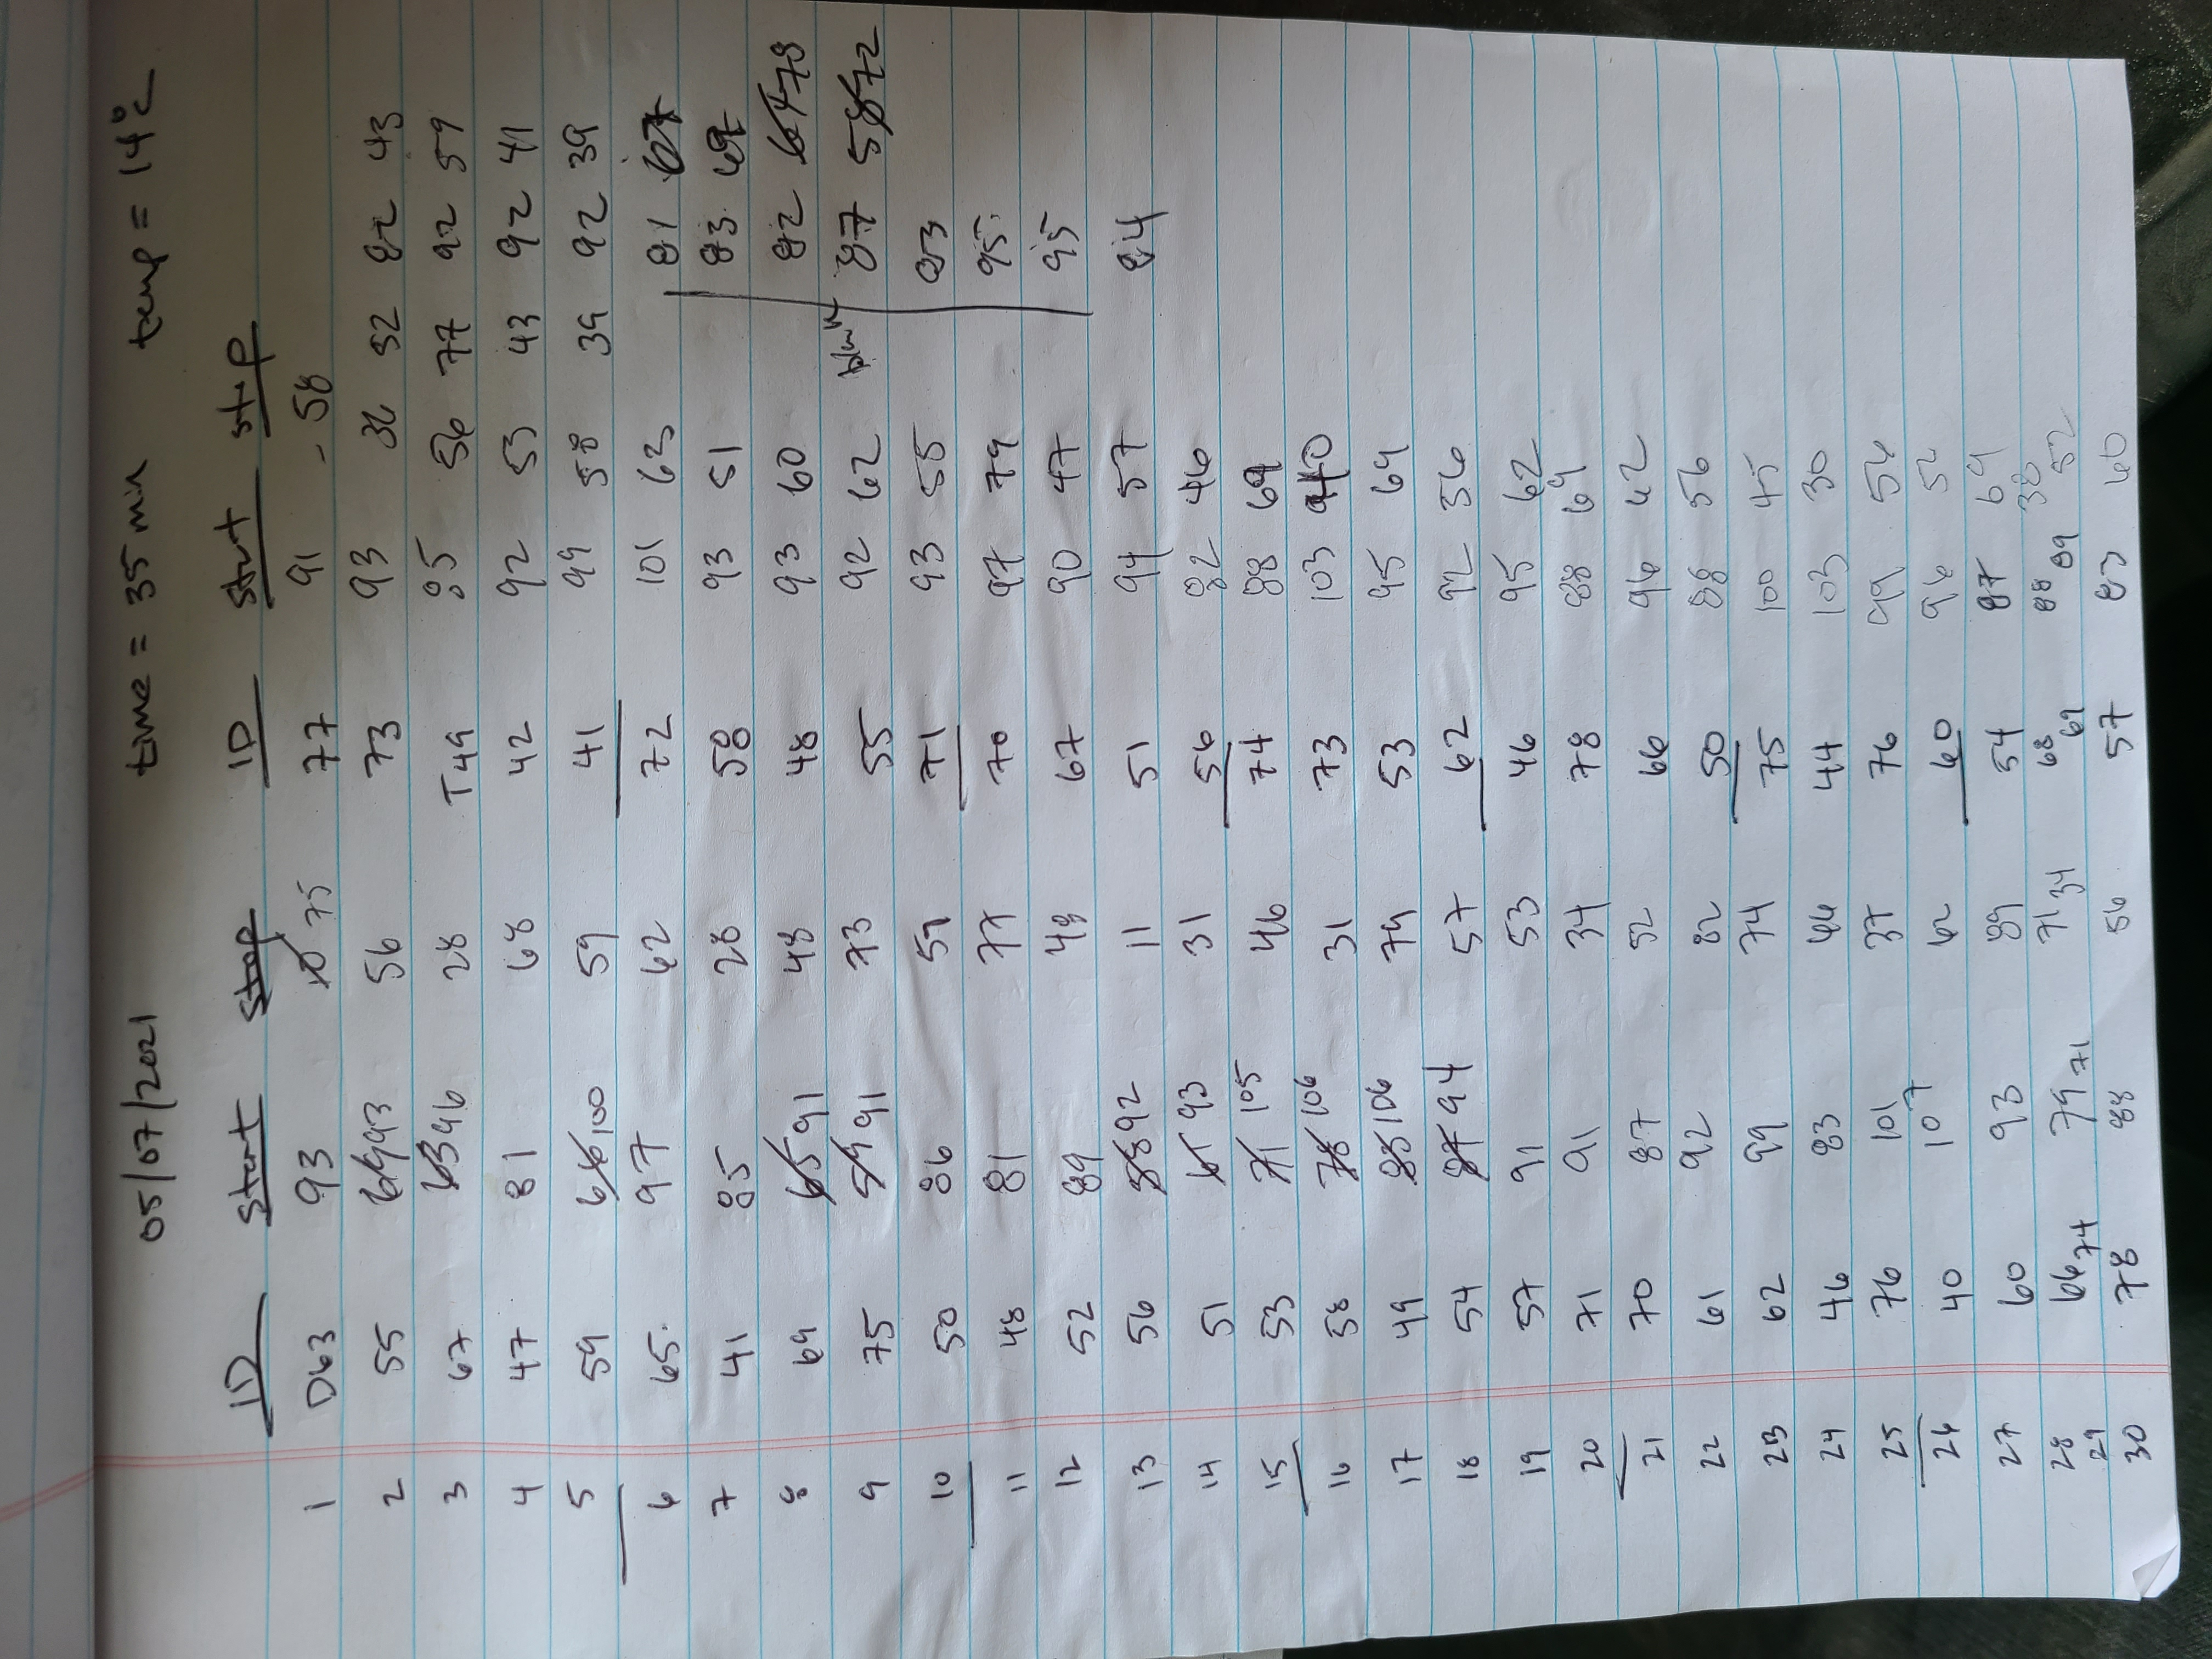 05/07/2021 time = 35 min temp = 14°C
ID start stop ID start stop
1 D63 93 75 77 91 - 58
2 55 93 56 73 93 36 52 82 43
3 67 96 28 T49 85 56 77 92 59
4 47 81 68 42 92 53 43 92 41
5 59 66 100 59 41 99 58 39 92 39
6 65 97 62 72 101 63 81 67
7 41 85 28 58 93 51 83
8 69 65 91 48 48 93 60 82 64 78
9 75 59 91 73 55 92 62 blank 87 58 72
10 50 86 57 71 93 55 83
11 48 81 77 70 97 79 95
12 52 89 48 67 90 47 95
13 56 58 92 11 51 94 57 84
14 51 61 93 31 56 82 46
15 53 71 105 46 74 88 69
16 58 78 106 31 73 103 40
17 49 83 106 79 53 95 69
18 54 87 94 57 62 92 56
19 57 91 53 46 95 62
20 71 91 34 78 88 69
21 70 87 52 66 96 62
22 61 92 82 50 88 56
23 62 99 74 75 100 45
24 46 83 46 44 103 30
25 76 101 37 76 99 56
26 40 107 62 60 96 52
27 60 93 89 54 87 69
28 66 79 71 68 88 38
29 74 71 34 69 89 52
30 78 88 56 57 83 60